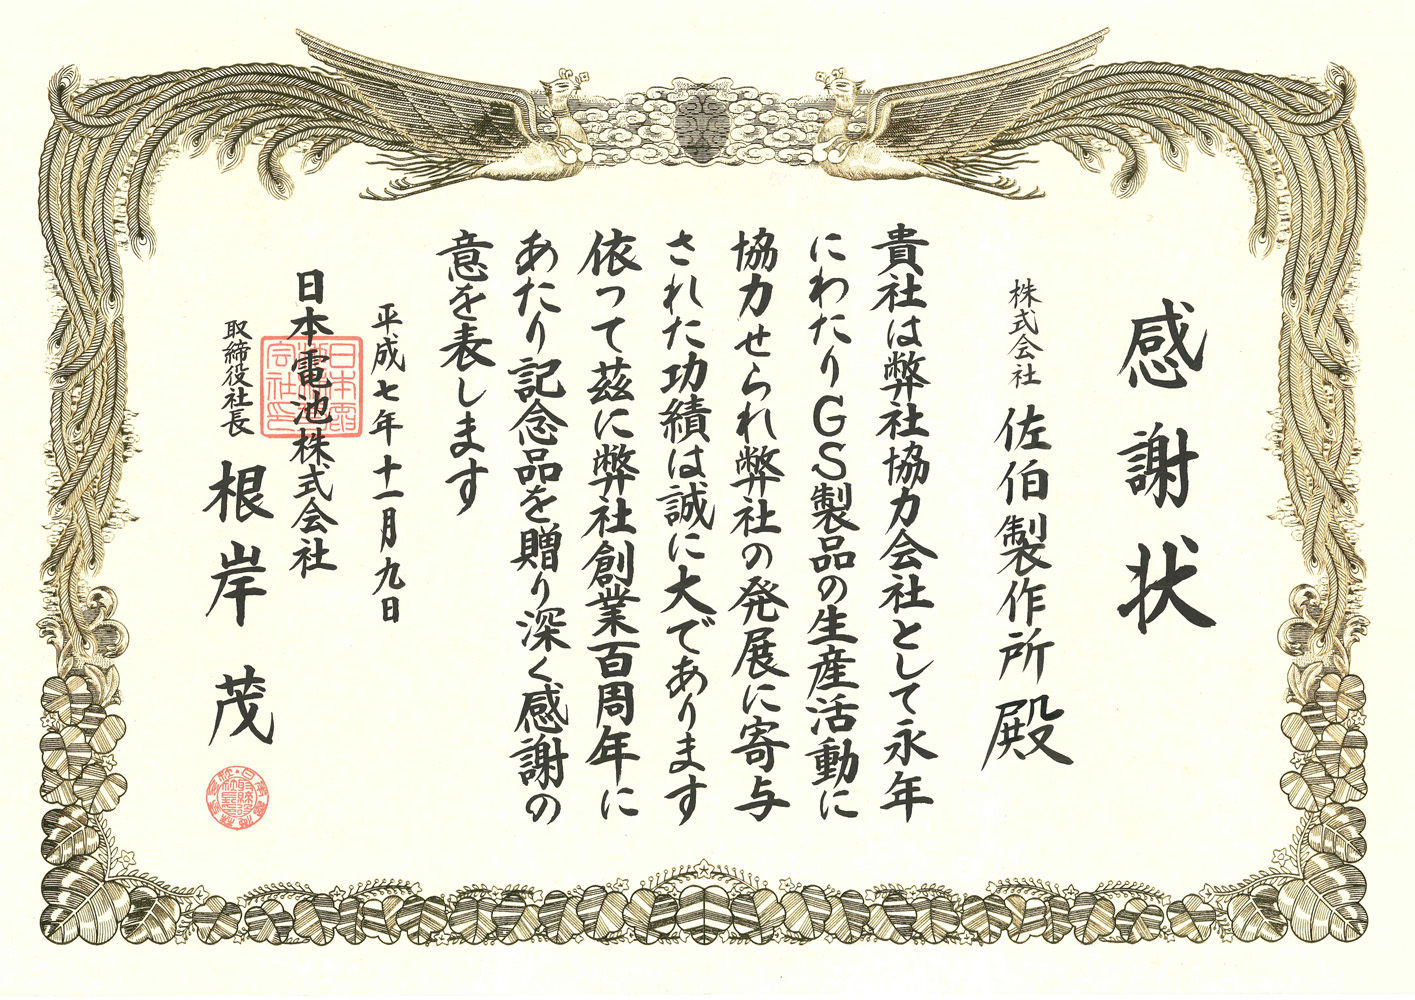 感謝状
株式会社 佐伯製作所 殿
貴社は弊社協力会社として永年
にわたりGS製品の生産活動に
協力せられ弊社の発展に寄与
された功績は誠に大であります
依って茲に弊社創業百周年に
あたり記念品を贈り深く感謝の
意を表します
平成七年十一月九日
日本電池株式会社
取締役社長 根岸茂